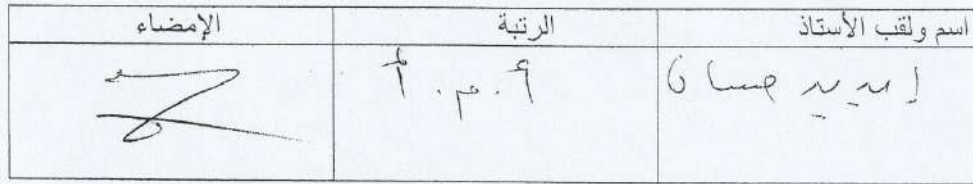 اسم ولقب الأستاذ الرتبة الإمضاء
حسان أ. م. أ